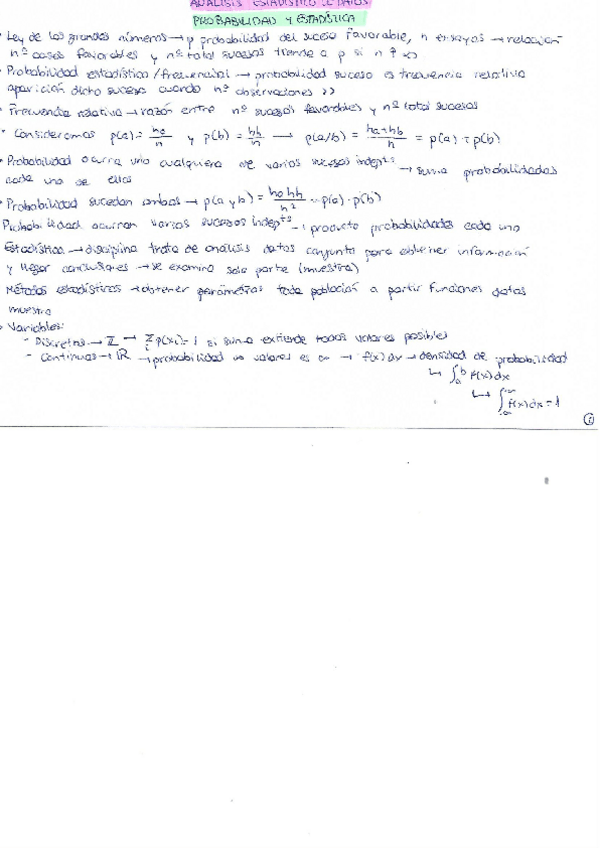 ANÁLISIS ESTADÍSTICO DE DATOS
PROBABILIDAD Y ESTADÍSTICA
· Ley de los grandes números → p probabilidad del suceso favorable, n ensayos → relación
nº casos favorables y nº total sucesos tiende a p si n ↑ ∞
· Probabilidad estadística / frecuencial → probabilidad suceso es frecuencia relativa
aparición dicho suceso cuando nº observaciones >>
· Frecuencia relativa → razón entre nº sucesos favorables y nº total sucesos
· Consideramos p(a) = ha/n y p(b) = hb/n → p(a/b) = ha+hb/n = p(a) + p(b)
· Probabilidad ocurra uno cualquiera de varios sucesos indepts → suma probabilidades
cada uno de ellos
· Probabilidad sucedan ambos → p(a y b) = ha hb/n² = p(a) · p(b)
Probabilidad ocurran varios sucesos indepts → producto probabilidades cada uno
Estadística → disciplina trata de análisis datos conjunto para obtener información
y llegar conclusiones → se examina solo parte (muestra)
Métodos estadísticos → obtener parámetros toda población a partir funciones datos
muestra
· Variables:
- Discretas → ℤ → Σi p(xi) = 1 si suma extiende todos valores posibles
- Continuas → ℝ → probabilidad valores es → f(x) dx → densidad de probabilidad
↳ ∫a^b f(x) dx
↳ ∫-∞^∞ f(x) dx = 1